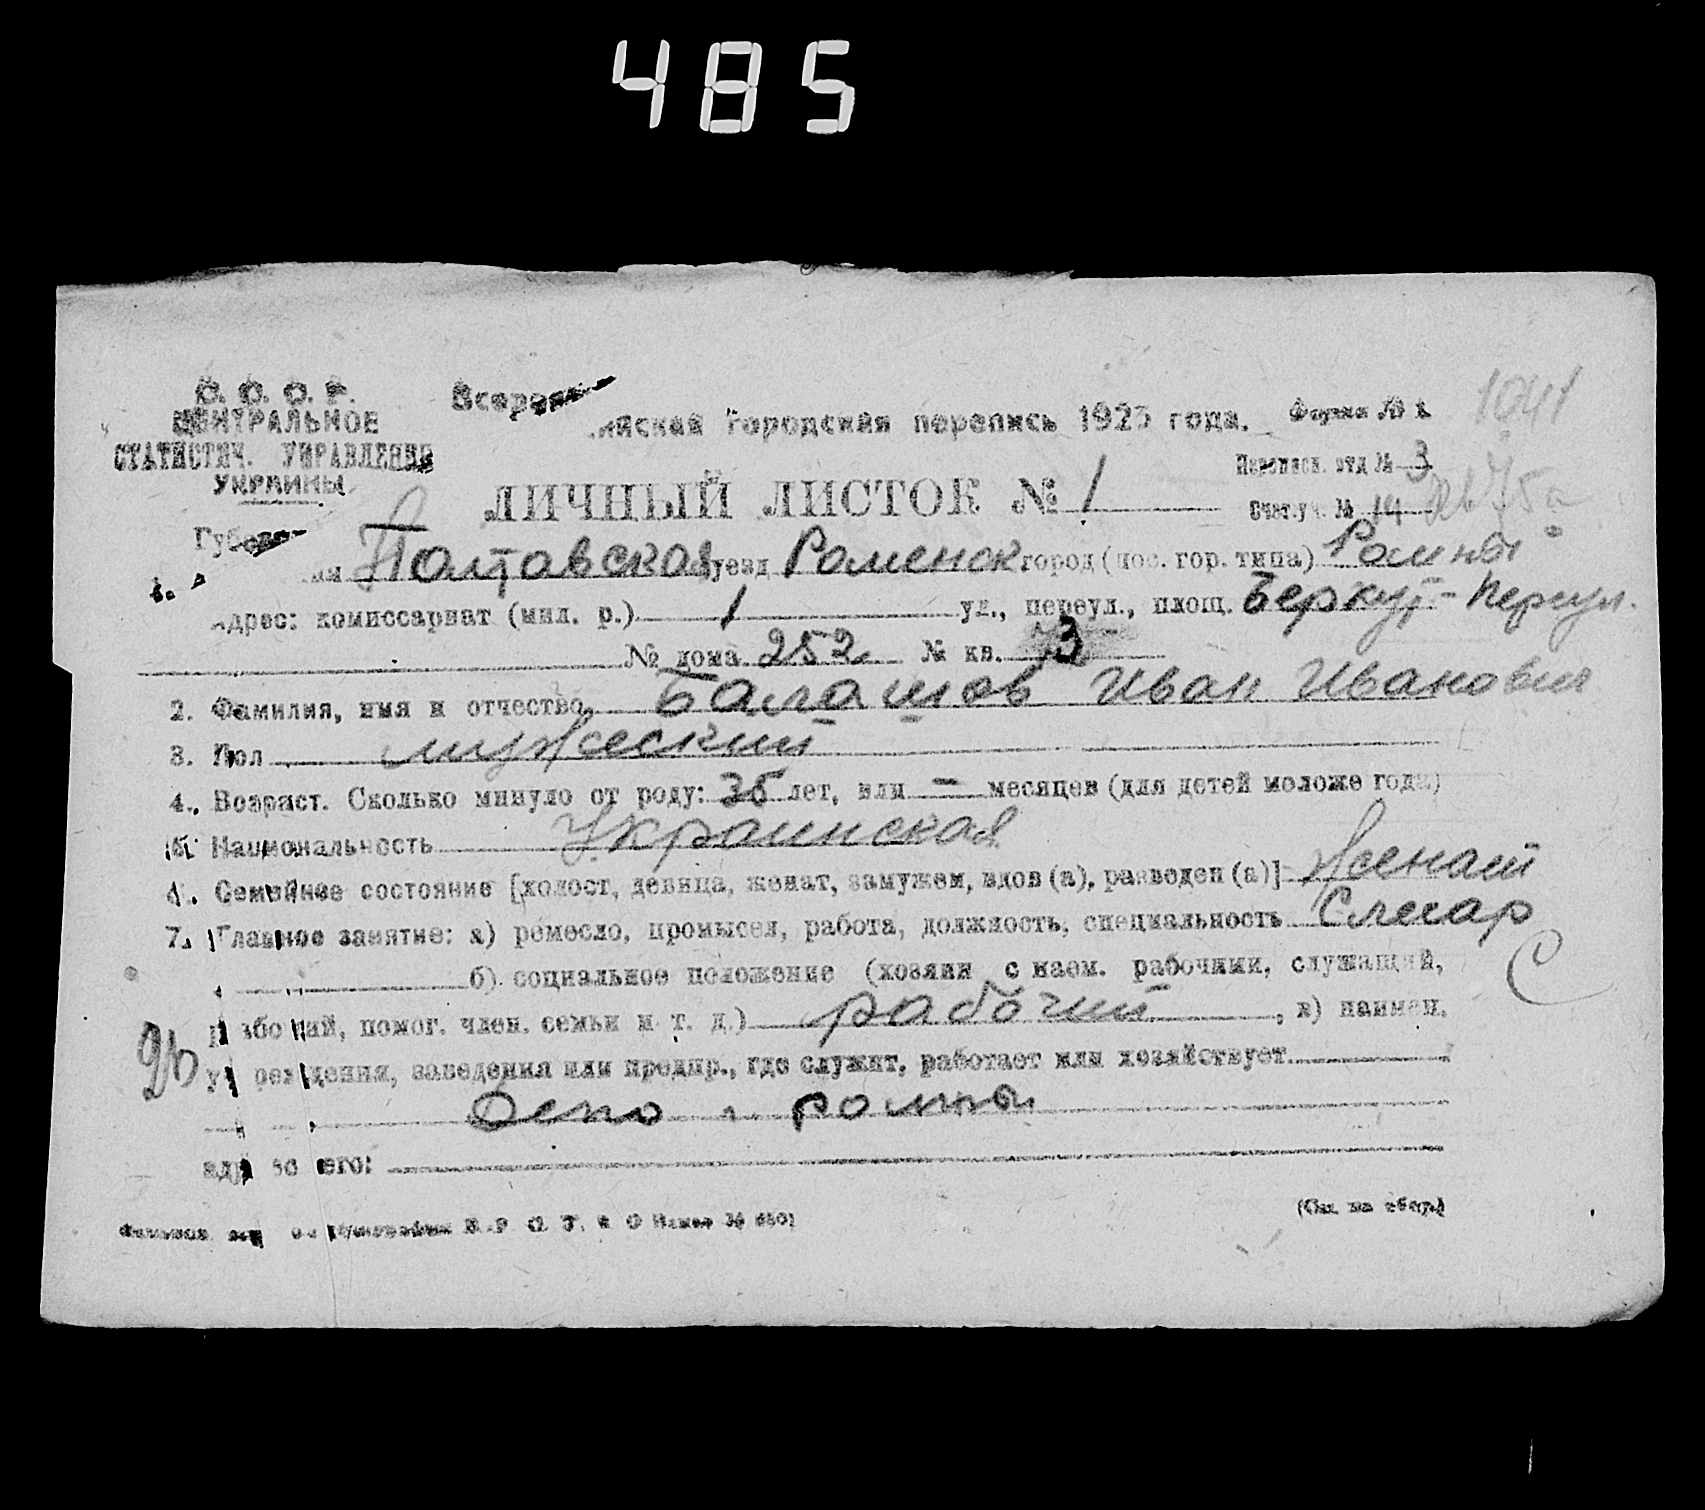 485
С. С. С. Р.
ЦЕНТРАЛЬНОЕ
СТАТИСТИЧ. УПРАВЛЕНИЕ
УКРАИНЫ
Всеросс
ийская городская перепись 1923 года. Форма № 1. 1041
Переписн. отд № 3
ЛИЧНЫЙ ЛИСТОК № 1
Счет. уч. № 14
Губерния Полтавская уезд Роменск город (пос. гор. типа) Ромны
Адрес: комиссариат (мил. р.) 1 ул., переул., площ. Беркут - Переул.
№ дома 252 № кв. 3
2. Фамилия, имя и отчество Балашов Иван Иванович
3. Пол мужеский
4. Возраст. Сколько минуло от роду: 35 лет, или — месяцев (для детей моложе года)
5. Национальность Украинская
6. Семейное состояние [холост, девица, женат, замужем, вдов (а), разведен (а)] Женат
7. Главное занятие: а) ремесло, промысел, работа, должность, специальность Слесар
б) социальное положение (хозяин с наем. рабочими, служащий,
рабочий, помог. член. семьи и т. д.) рабочий, в) наимен.
учреждения, заведения или предпр., где служит, работает или хозяйствует
Депо ромны
адрес его:
(См. на обор.)